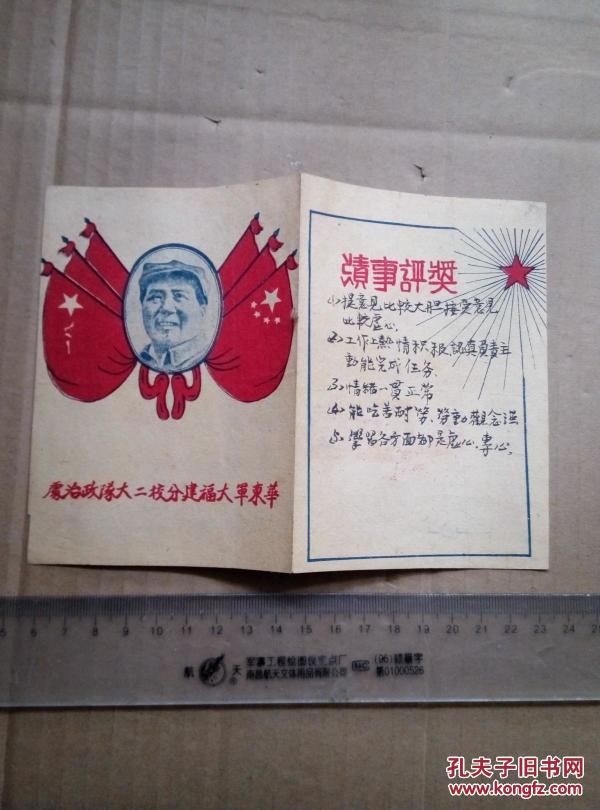 八一
華東軍大福建分校二大隊政治處
獎評事績
(1)提意見比較大胆接受意見
比較虚心.
(2)工作上熱情积极認真負責主
動能完成任务.
(3)情緒一貫正常
(4)能吃苦耐劳、劳動觀念强
(5)學習各方面都是虚心.專心.
5 6 7 8 9 10 11 12 13 14 15 16 17 18 19 20 21 22 23 24 25
航天®
军事工程绘图仪定点厂
南昌航天文体用品有限公司
MC
(96)赣量字
第01000526
孔夫子旧书网
www.kongfz.com